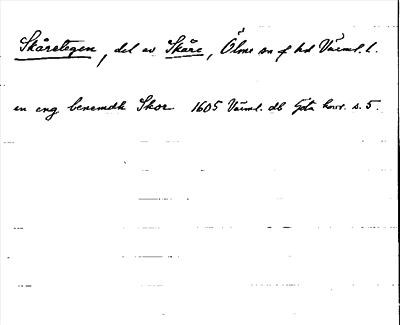 Skåretegen, del av Skåre, Ölme sn o f hd Värml. l.
en eng benemdh Skor 1605 Värml. db Göta hovr. s. 5.